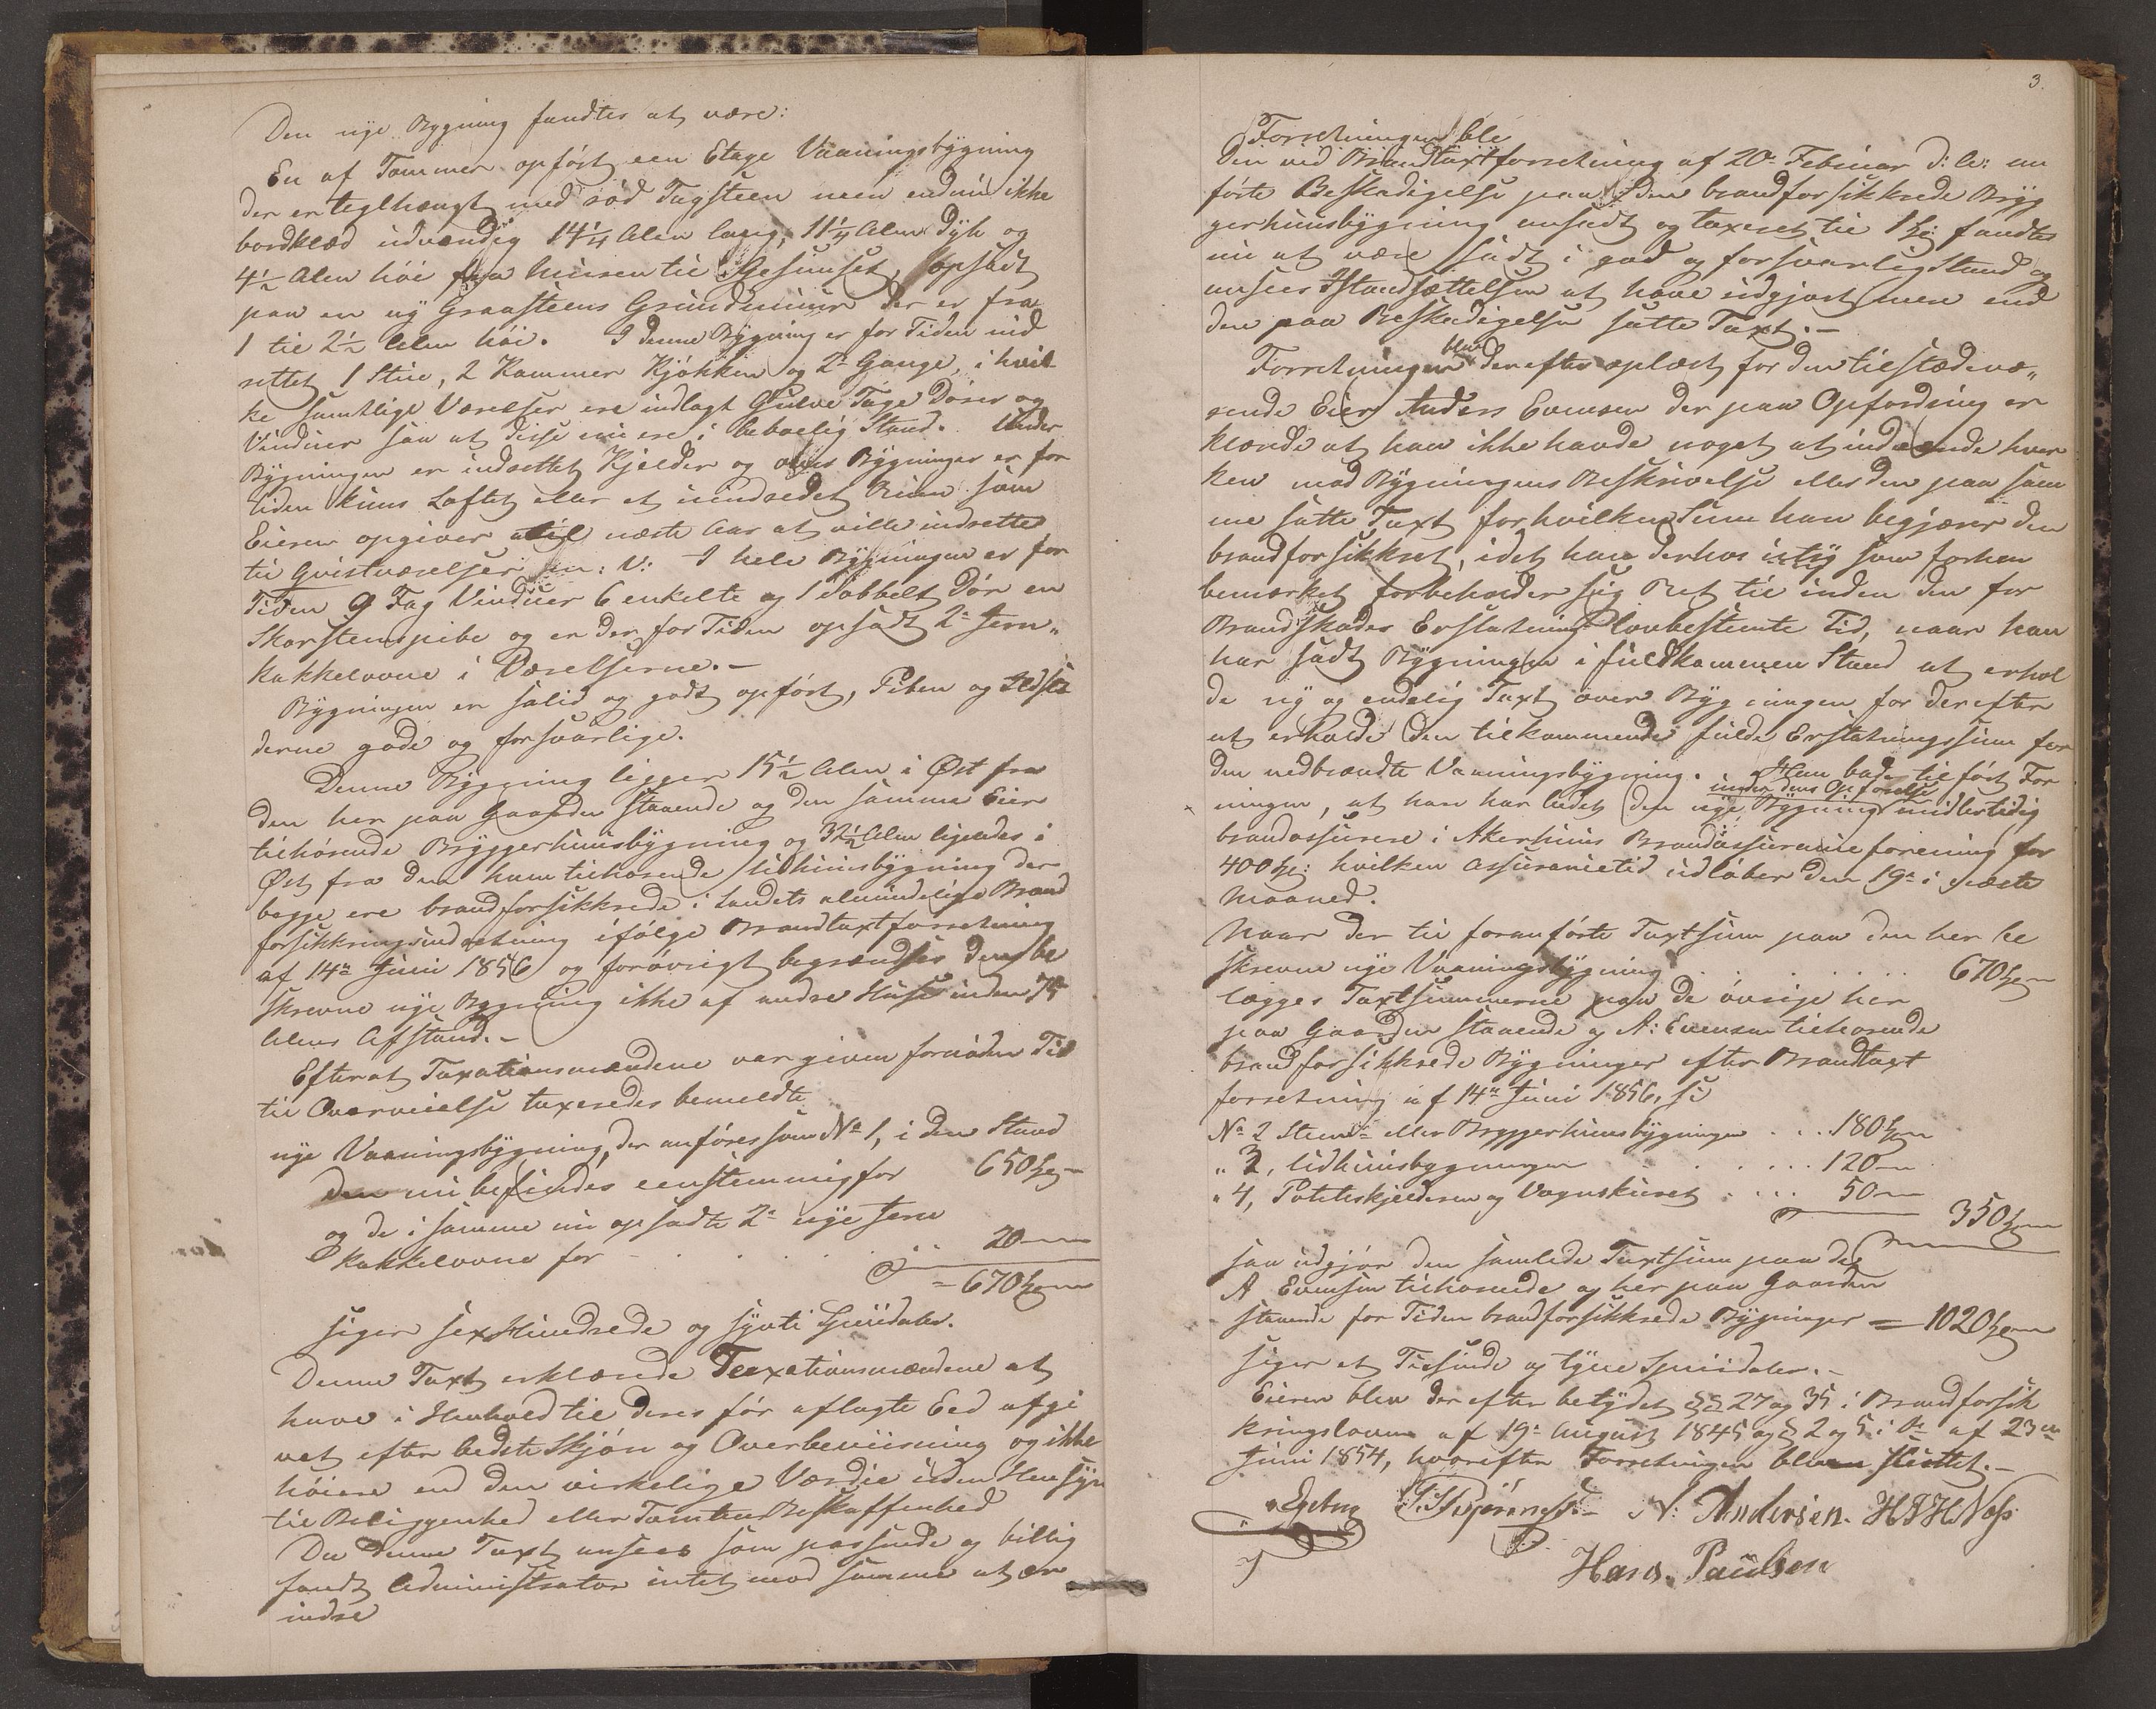 Den nye Bygning fandtes at være:
En af Tømmer opført een Etage Vaaningsbygning
der er teglhængt med rød Tagsteen men endnu ikke
bordklæd udvendig 14¼ Alen lang, 11¼ Alen dyb og
4½ Alen høi fra Muren til Gesimset, opsadt
paa en ny Graasteens Grundmuur der er fra
1 til 2½ Alen høi. I denne Bygning er for Tiden ind
rettet 1 Stue, 2 Kammer Kjøkken og 2de Gange, i hvil
ke samtlige Værelser ere indlagt Gulve Tage Dører og
Vinduer saa at disse nu ere i beboelig Stand. Under
Bygningen er indrettet Kjelder og over Bygninger er for
tiden kuns Loftet eller et uindredet Rum som
Eieren opgiver at til næste Aar at ville indrette
til Qvistværelser m: V: I hele Bygningen er for
Tiden 9 Fag Vinduer 6 enkelte og 1 dobbelt Dør en
Skorsteenspibe og er der for Tiden opsadt 2de Jern„
kakkelovne i Værelserne.-
Bygningen er solid og godt opført, Piben og Ildste
derne gode og forsvarlige.
Denne Bygning ligger 15½ Alen i Øst fra
den her paa Gaarden staaende og den samme Eier
tilhørende Bryggerhuusbygning og 32½ Alen ligeledes i
Øst fra den ham tilhørende Udhuusbygning der
begge ere brandforsikkrede i Landets almindelige Brand
forsikkringsindretning ifølge Brandtaxtforretning
af 14de Juni 1856 og forøvrigt begrændses den be
skrevne nye Bygning ikke af andre Huse inden 75
Alens Afstand.-
Efterat Taxationsmændene var given fornøden Tid
til Overveielse taxeredes bemeldte
nye Vaaningsbygning, der anføres som No 1, i den Stand
den nu befindes eenstemmig for 650 Spd -
og de i samme nu opsadte 2de nye Jern
kakkelovne for - . . . . . 20 —
= 670 Spd
siger sex Hundrede og sytti Speciedaler.
Denne Taxt erklærede Taxationsmændene at
have i Henhold til deres før aflagte Eed afgi
vet efter bedste Skjøn og Overbeviisning og ikke
høiere end den virkelige Værdie uden Hensyn
til Beliggenhed eller Tomtens Beskaffenhed
Da denne Taxt ansees som passende og billig
fandt Administrator intet mod samme at er
indre
3.
Forretningen ble
den ved Brandtaxtforretning af 20de Februar d: A: an
førte Beskadigelse paa den brandforsikkrede Bryg
gerhuusbygning ansadt og taxeret til 1 Spd: fandtes
nu at være sadt i god og forsvarlig Stand og
ansees Istandsættelsen at have udgjort mere end
den paa Beskadigelsen satte Taxt.-
Forretningen blev derefter oplæst for den tilstædevæ„
rende Eier Anders Evensen der paa Opfordring er
klærede at han ikke havde noget at indvende hver
ken mod Bygningens Beskrivelse eller den paa sam
me satte Taxt for hvilken Sum han begjærer den
brandforsikkret, idet han derhos som forhen
bemærket forbeholder sig Ret til inden den for
Brandskades Erstatning lovbestemte Tid, naar han
har sadt Bygningen i fuldkommen Stand at erhol
de ny og endelig Taxt over Bygningen for derefter
at erholde den tilkommende fulde Erstatningssum for
den nedbrændte Vaaningsbygning. Han bad tilført For
under dens Opførelse
ningen, at han har ladet den nye Bygning midlertidig
brandassurere i Akerhuus Brandassuranceforening for
400 Spd: hvilken Assurancetid udløber den 19de i næste
Maaned.
Naar der til foranførte Taxtsum paa den her be
skrevne nye Vaaningsbygning . . . . . . 670 Spd
lægges Taxtsummerne paa de øvrige her
paa Gaarden staaende og A: Evensen tilhørende
brandforsikkrede Bygninger efter Brandtaxt
forretning af 14de Juni 1856, se
No 2 Steens- eller Bryggerhuusbygningen . . . 180 Spd
„ 3, Udhuusbygningen . . . . . 120 —
„ 4, Poteteskjelderen og Vognskuret . . . . 50 —
350 Spd
saa udgjør den samlede Taxtsum paa de
A Evensen tilhørende og her paa Gaarden
staaende for Tiden brandforsikkrede Bygninger = 1020 Spd
siger et Tusinde og tyve Speciedaler.-
Eieren blev derefter betydet §§ 27 og 35 i Brandforsik
kringsloven af 19de August 1845 og § 2 og 5 i do af 23de
Juni 1854, hvorefter Forretningen blev sluttet.-
N: Andersen. H J H Næss
Hans. Paulsen